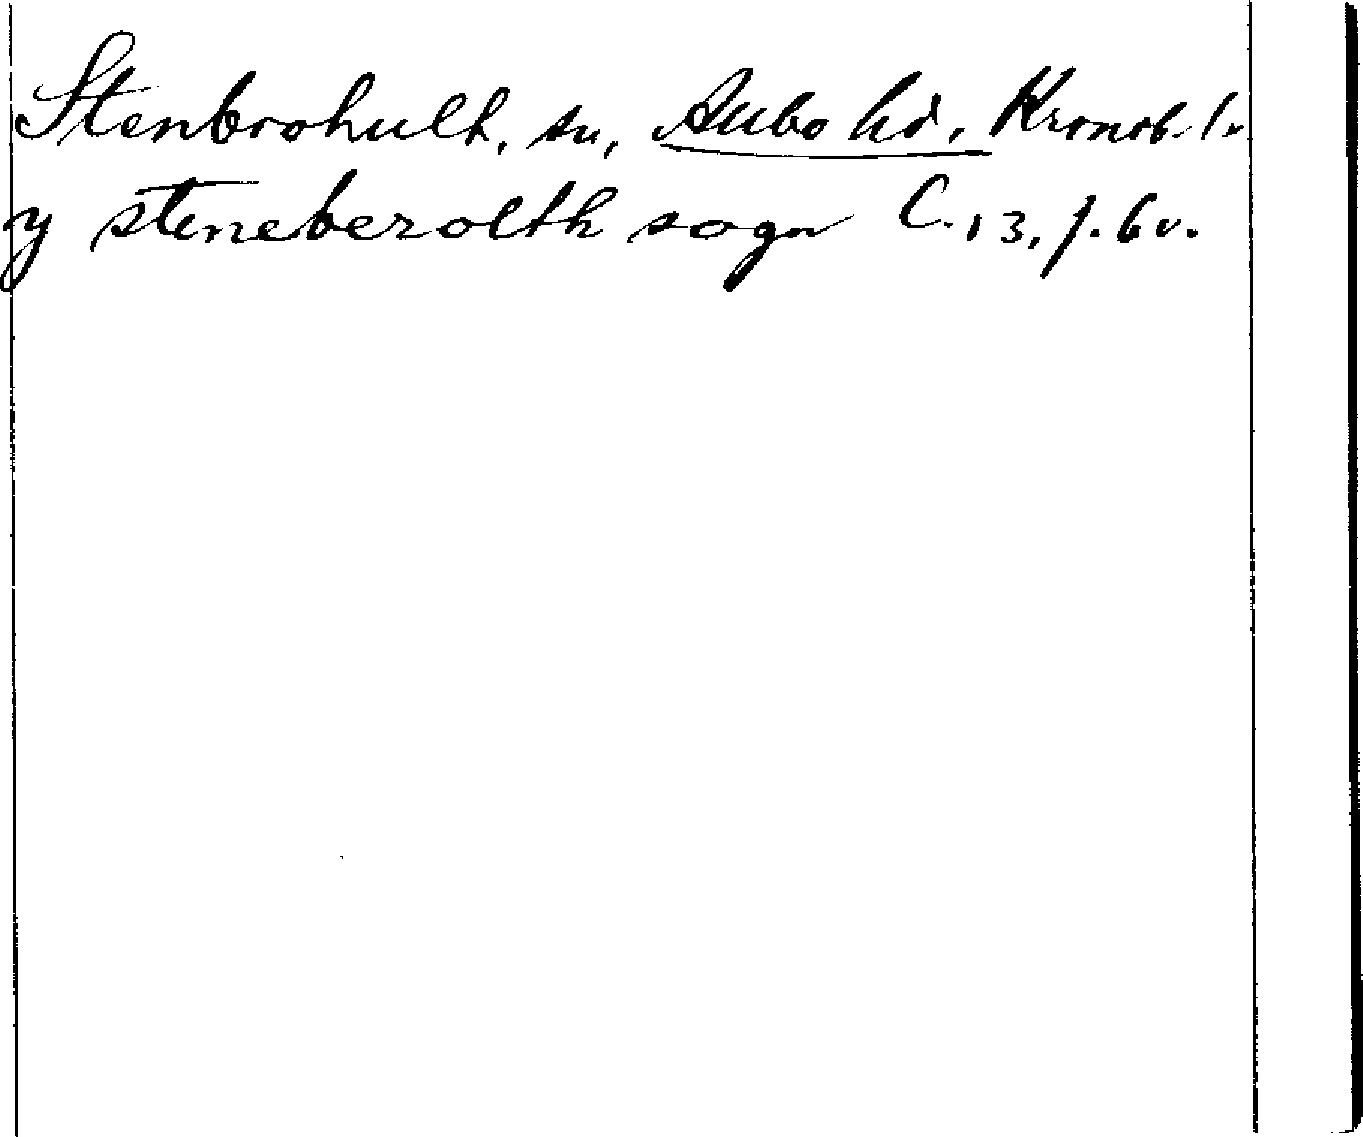 Stenbrohult, sn, Allbo hd, Kronob. l.
y steneberolth sogn C. 13, f. 6 v.